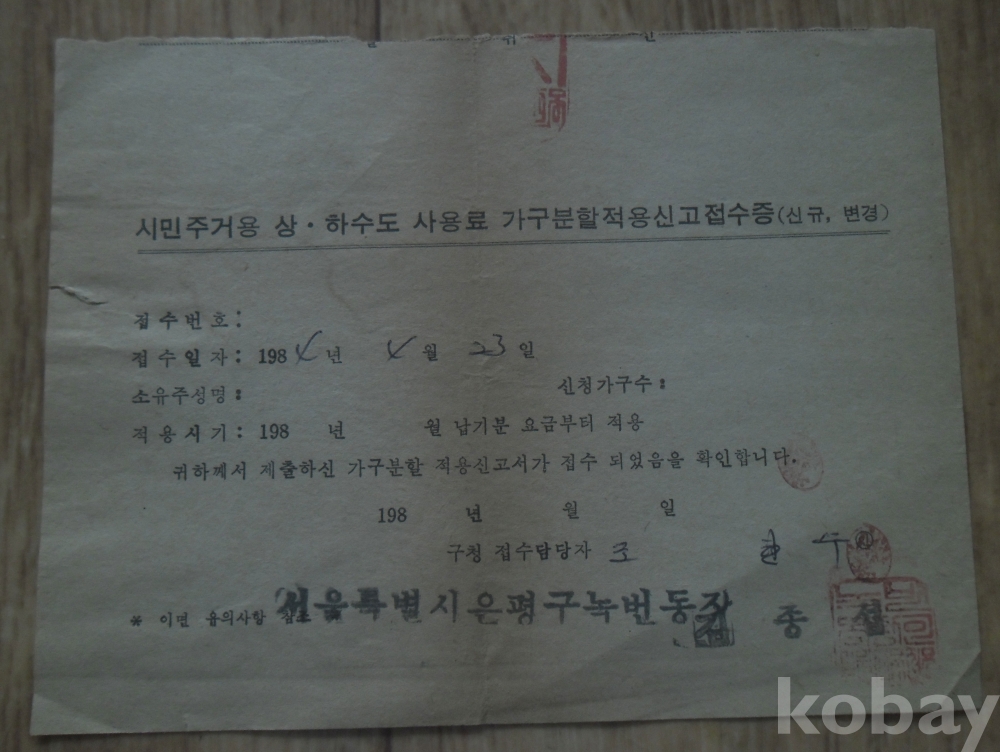 시민주거용 상·하수도 사용료 가구분할적용신고접수증(신규, 변경)
접수번호:
접수일자: 1984년 4월 23일
소유주성명: 신청가구수:
적용시기: 198 년 월 납기분 요금부터 적용
귀하께서 제출하신 가구분할 적용신고서가 접수 되었음을 확인합니다.
198 년 월 일
구청 접수담당자 조
서울특별시은평구녹번동장
* 이면 유의사항
kobay